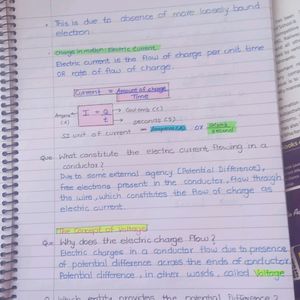 • This is due to absence of more loosely bound
electron.
• Charge in motion: Electric Current
Electric current is the flow of charge per unit time
OR rate of flow of charge.
Current = Amount of charge
Time
Ampere (A) I = Q → Coulomb (C)
t → seconds (S)
SI unit of current = Ampere (A) or Coulomb
second
Que. What constitute the electric current flowing in a
conductor?
Due to some external agency (Potential Difference),
free electrons present in the conductor, flow through
the wire, which constitutes the flow of charge as
electric current.
The Concept of Voltage
Que Why does the electric charge flow?
Electric charges in a conductor flow due to presence
of potential difference across the ends of conductor.
Potential difference, in other words, called Voltage
Q Which entity provides the potential Difference?